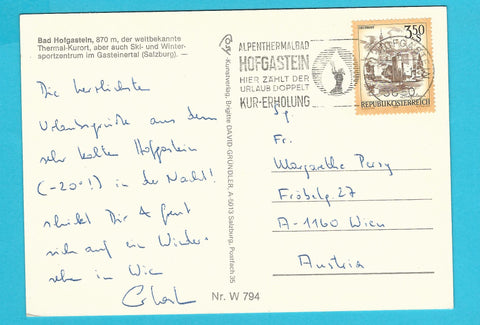 Bad Hofgastein, 870 m, der weltbekannte
Thermal-Kurort, aber auch Ski- und Winter-
sportzentrum im Gasteinertal (Salzburg). —
Die herzlichsten
Urlaubsgrüße aus dem
sehr kalten Hofgastein
(-20°!) in der Nacht!
schickt Dir & freut
sich auf ein Wieder-
sehen in Wien
Nr. W 794
Kunstverlag, Brigitte DAVID-GRÜNDLER, A-5013 Salzburg, Postfach 35
ALPENTHERMALBAD
HOFGASTEIN
HIER ZÄHLT DER
URLAUB DOPPELT
KUR-ERHOLUNG
3.50
REPUBLIK ÖSTERREICH
Fr.
Margarethe
Fröbelg. 27
A-1160 Wien
Austria